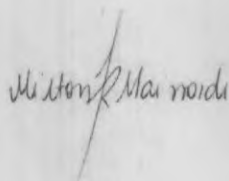 Milton R Mainardi